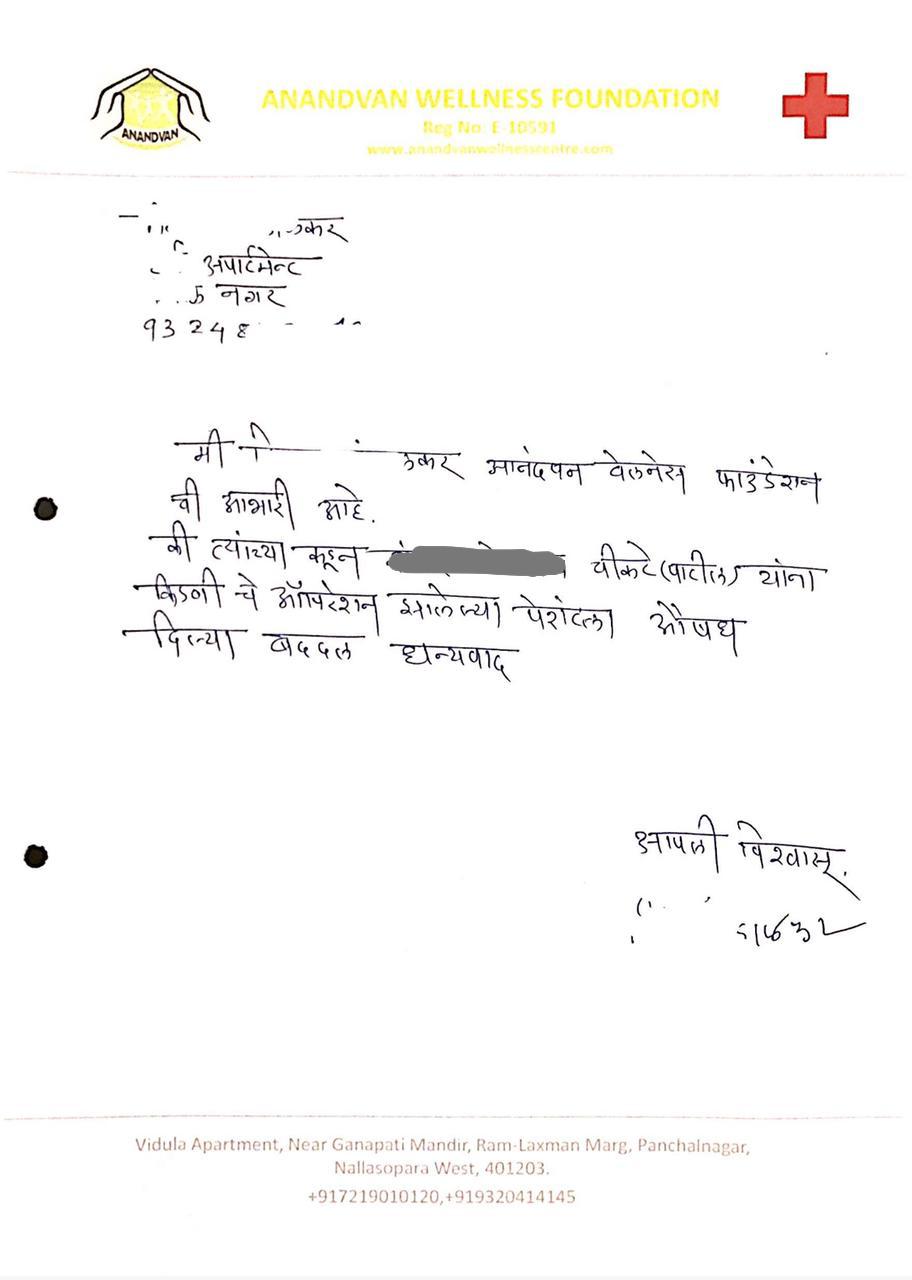 ANANDVAN
ANANDVAN WELLNESS FOUNDATION
Reg No: E-10591
www.anandvanwellnesscentre.com
कर
अपार्टमेन्ट
नगर
93248
मी कर आनंदवन वेलनेस फाउंडेशन
ची आभारी आहे.
की त्यांच्या कडून चीकटे (पाटील) यांना
किडनी चे ऑपरेशन झालेल्या पेशंटला औषध
दिल्या बददल धन्यवाद
आपली विश्वासू.
Vidula Apartment, Near Ganapati Mandir, Ram-Laxman Marg, Panchalnagar,
Nallasopara West, 401203.
+917219010120,+919320414145